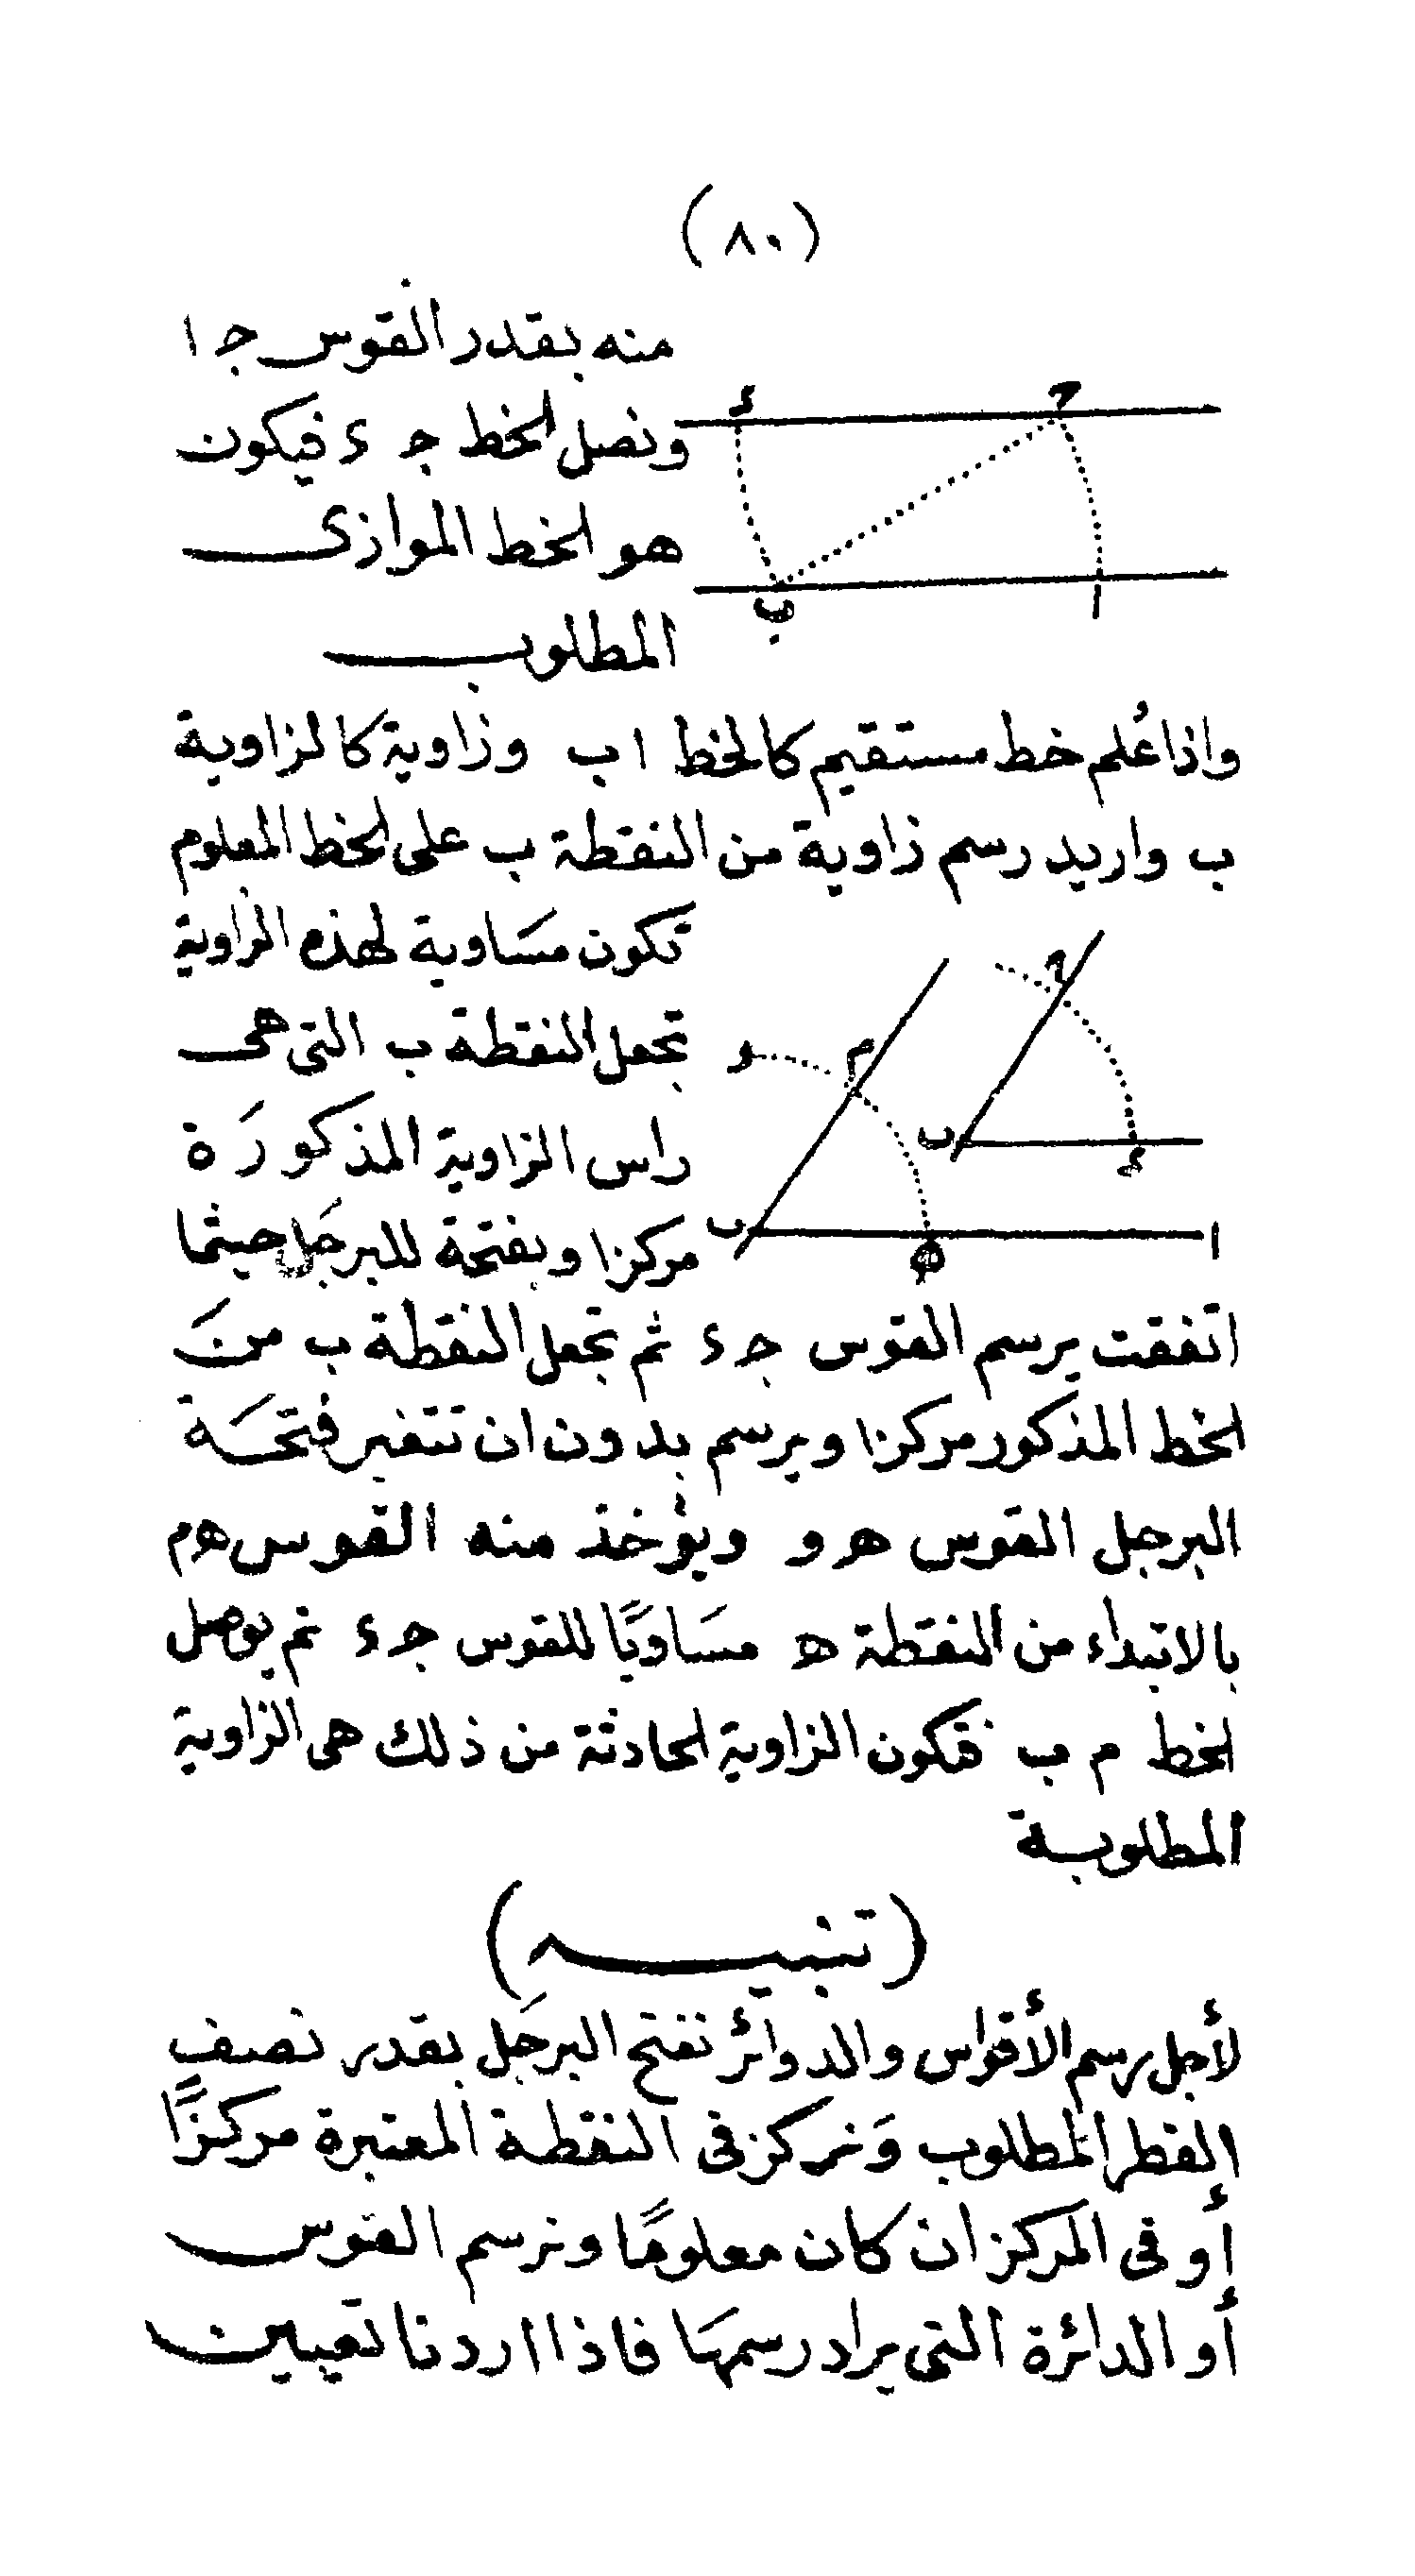 (٨٠)
منه بقدر القوس ج ا
ونصل الخط ج ء فيكون
هو الخط الموازى
المطلوب
ء ج
ب ا
واذا عُلم خط مستقيم كالخط ا ب وزاوية كالزاوية
ب واريد رسم زاوية من النقطة ب على الخط المعلوم
تكون مسَاوية لهذه الزاوية
تجعل النقطة ب التى هى
راس الزاوية المذكورَة
مركزا وبفتحة للبرجَل حيثما
ج
و م
ب ء
ب ه ا
اتفقت يرسم القوس جء ثم تجعل النقطة ب منَ
الخط المذكور مركزا ويرسم بدون ان تتغير فتحَة
البرجل القوس هو ويؤخذ منه القوس هم
بالابتداء من النقطة ه مسَاويًا للقوس جء ثم يوصل
الخط م ب فتكون الزاوية الحادثة من ذلك هى الزاوية
المطلوبة
(تنبيه)
لأجل رسم الأقواس والدوائر نفتح البرجَل بقدر نصف
القطر المطلوب وَنركز فى النقطة المعتبرة مركزًا
أو فى المركز ان كان معلومًا ونرسم القوس
أو الدائرة التى يراد رسمهَا فاذا اردنا تعيين